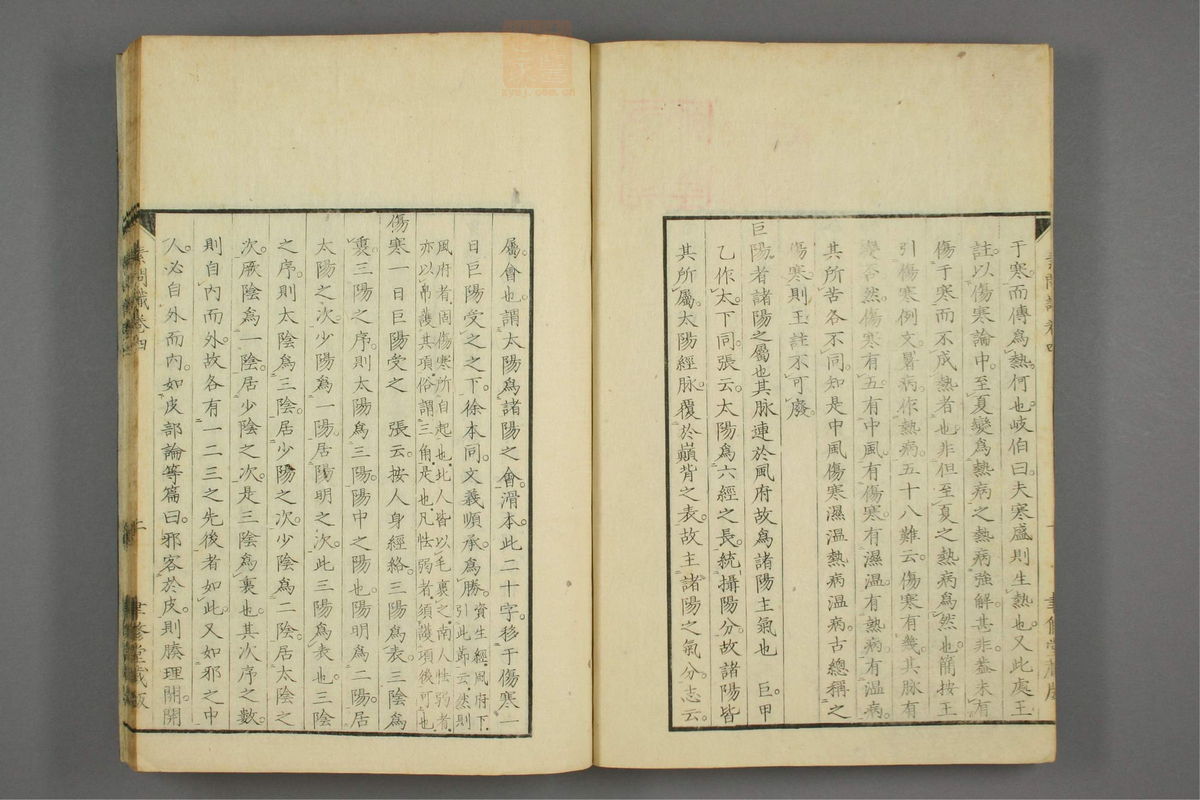 于寒。而傳爲熱。何也。岐伯曰。夫寒盛則生熱也。又此處王
註。以傷寒論中。至夏變爲熱病之熱病強解。甚非。蓋未有
傷于寒而不成熱者也。非但至夏之熱病爲然也。簡按王
引傷寒例文。暑病作熱病。五十八難云。傷寒有幾。其脉有
變否。然。傷寒有五。有中風。有傷寒。有濕温。有熱病。有温病。
其所苦各不同。知是中風傷寒濕温熱病温病。古總稱之
傷寒。則王註不可廢。
巨陽者諸陽之屬也其脉連於風府故爲諸陽主氣也 巨。甲
乙作太。下同。張云。太陽爲六經之長。統攝陽分。故諸陽皆
其所屬。太陽經脉。覆於巔背之表。故主諸陽之氣分。志云。
屬。會也。謂太陽爲諸陽之會。滑本。此二十字。移于傷寒一
日巨陽受之之下。徐本同。文義順承。爲勝。資生經。風府下。引此節云。然則
風府者。固傷寒所自起也。北人皆以毛裹之。南人怯弱者。亦以帛護其項。俗謂三角是也。凡怯弱者。須護項後可也
傷寒一日巨陽受之 張云。按人身經絡。三陽爲表。三陰爲
裏。三陽之序。則太陽爲三陽。陽中之陽也。陽明爲二陽。居
太陽之次。少陽爲一陽。居陽明之次。此三陽爲表也。三陰
之序。則太陰爲三陰。居少陽之次。少陰爲二陰。居太陰之
次。厥陰爲一陰。居少陰之次。是三陰爲裏也。其次序之數。
則自內而外。故各有一二三之先後者如此。又如邪之中
人。必自外而內。如皮部論等篇曰。邪客於皮。則腠理開。開
素問識卷四
聿修堂藏版